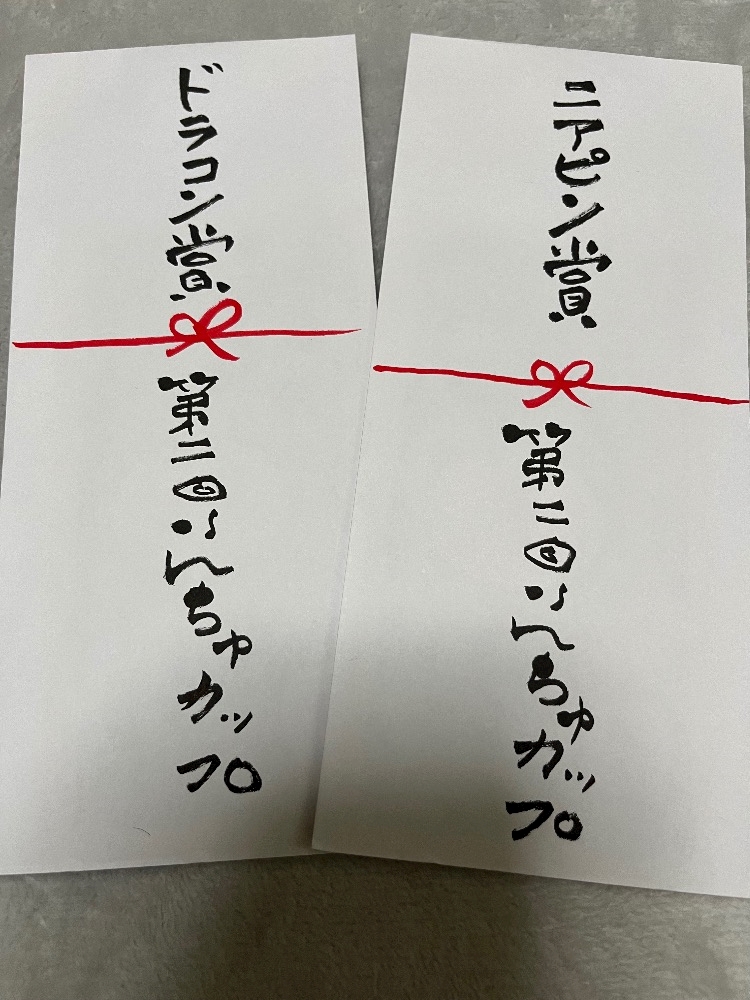 ドラコン賞
第二回いんちゃカップ
ニアピン賞
第二回いんちゃカップ